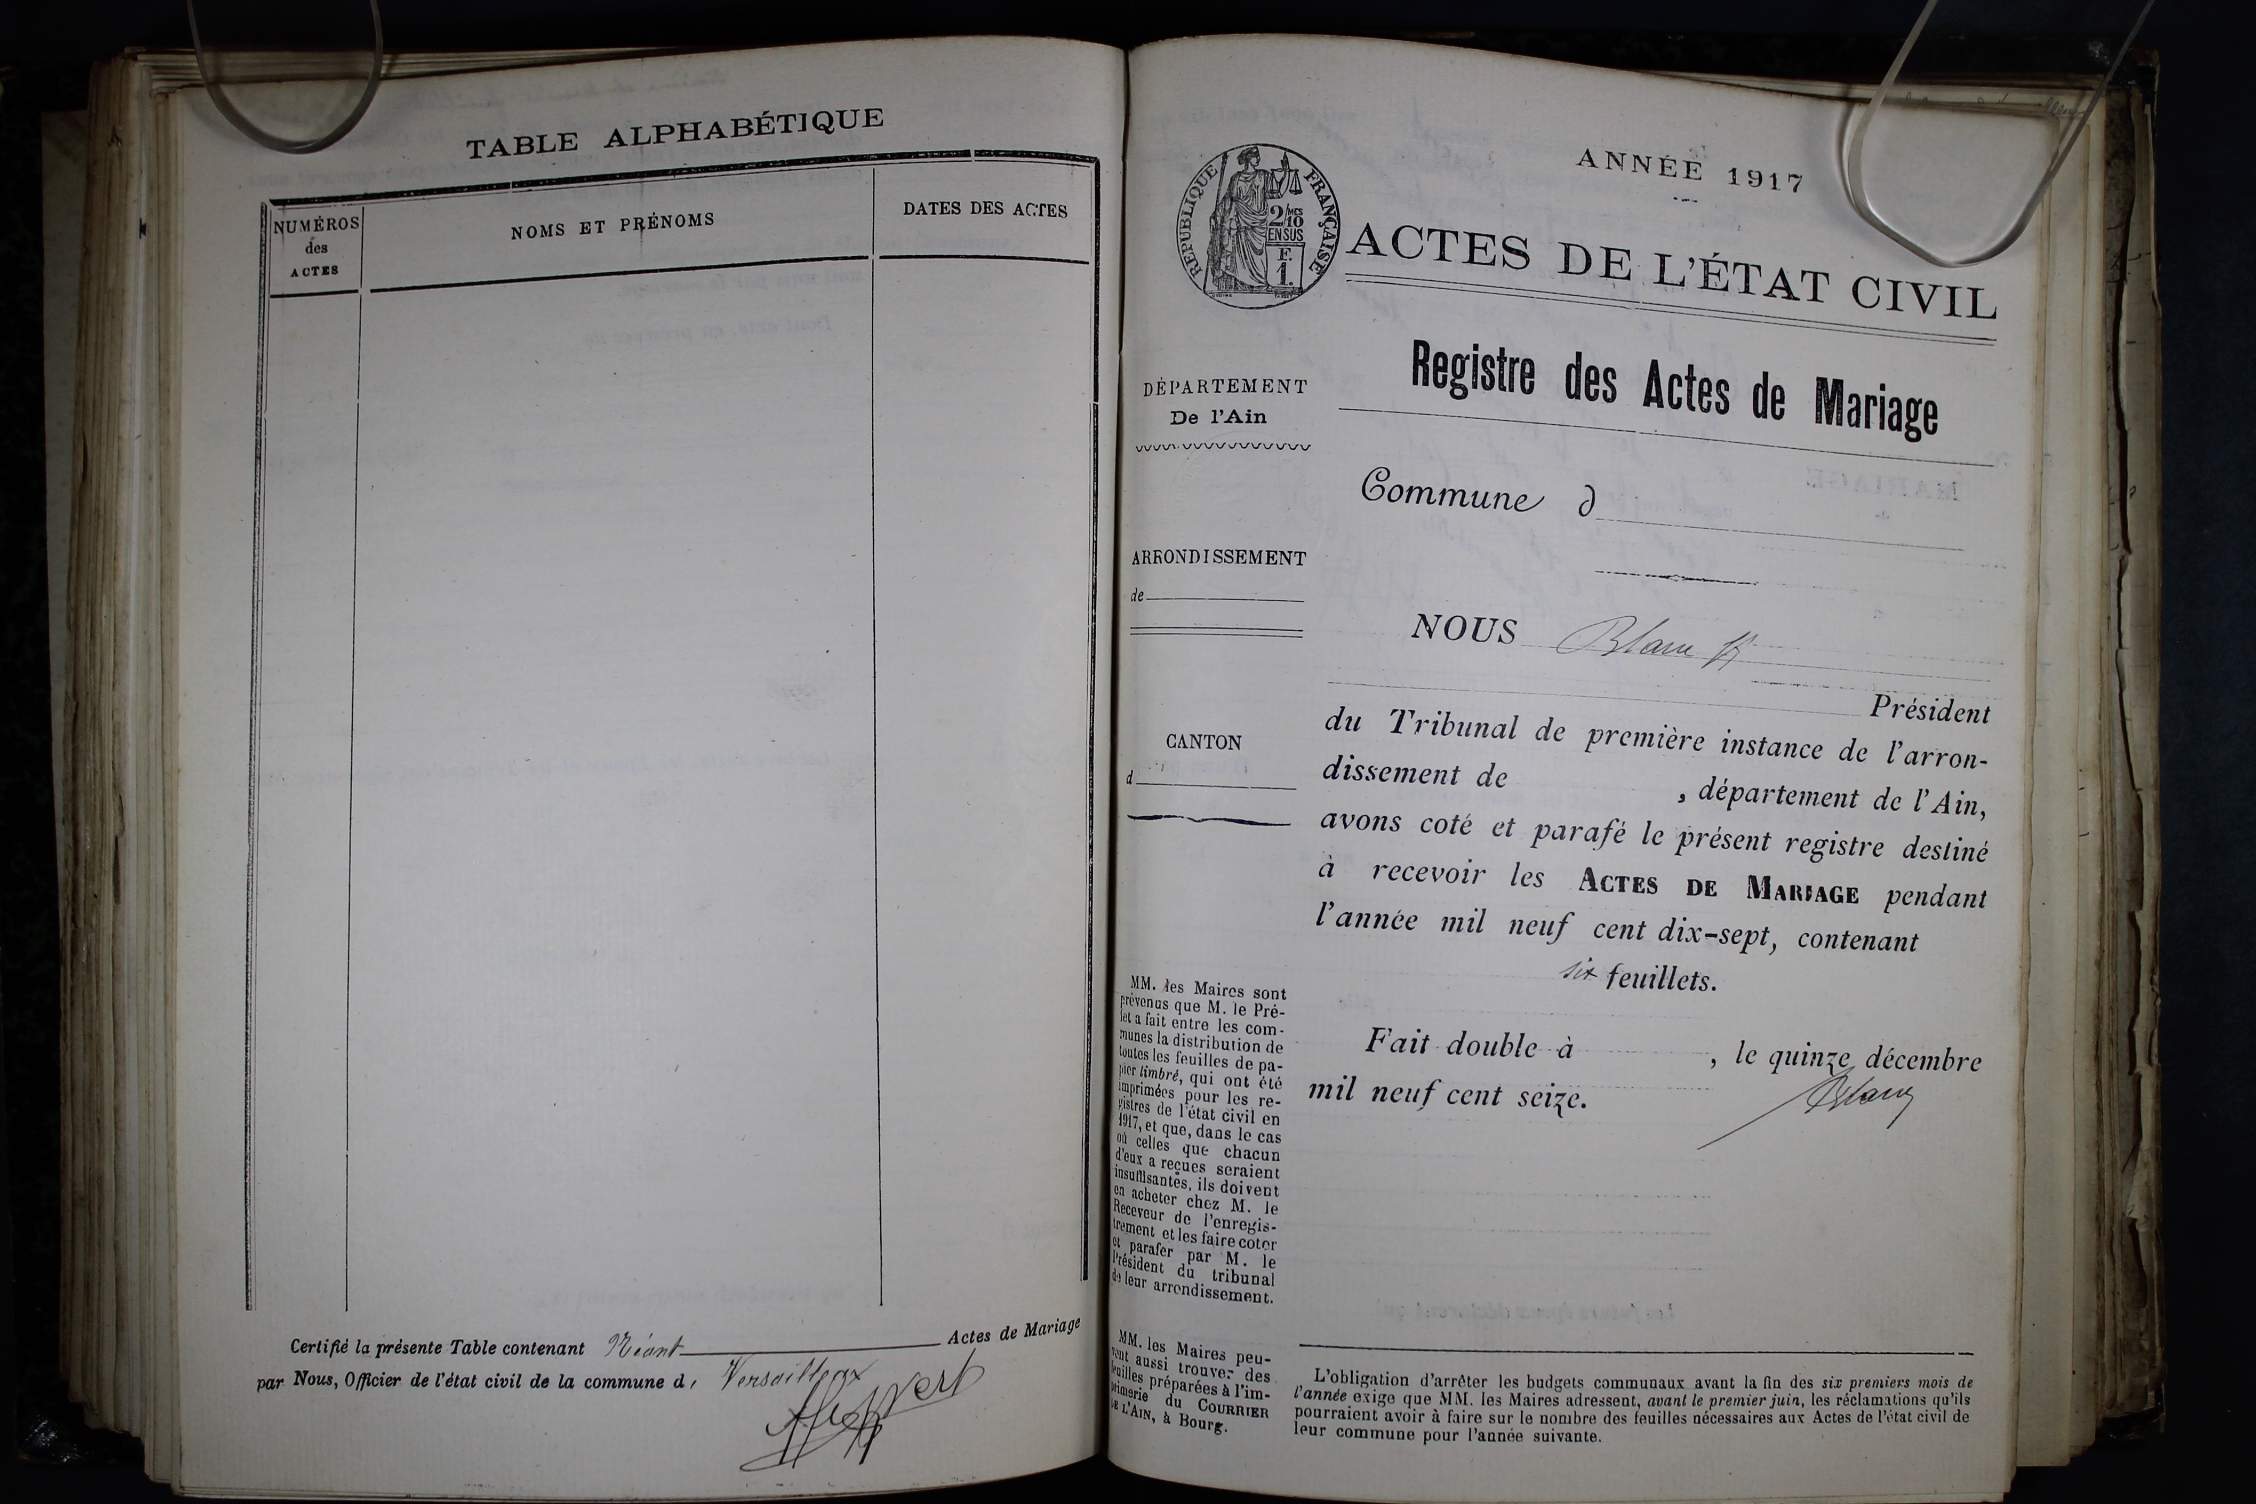 TABLE ALPHABÉTIQUE
NUMÉROS
des
ACTES
NOMS ET PRÉNOMS
DATES DES ACTES
Certifié la présente Table contenant Néant Actes de Mariage
par Nous, Officier de l'état civil de la commune de Versailleux
RÉPUBLIQUE FRANÇAISE
2/10 MES
EN SUS
F.
1.
ANNÉE 1917
ACTES DE L'ÉTAT CIVIL
DÉPARTEMENT
De l'Ain
ARRONDISSEMENT
de
CANTON
d
MM. les Maires sont
prévenus que M. le Pré-
fet a fait entre les com-
munes la distribution de
toutes les feuilles de pa-
pier timbré, qui ont été
imprimées pour les re-
gistres de l'état civil en
1917, et que, dans le cas
où celles que chacun
d'eux a reçues seraient
insuffisantes, ils doivent
en acheter chez M. le
Receveur de l'enregis-
trement et les faire coter
et parafer par M. le
Président du tribunal
de leur arrondissement.
MM. les Maires peu-
vent aussi trouver des
feuilles préparées à l'im-
primerie du COURRIER
DE L'AIN, à Bourg.
Registre des Actes de Mariage
Commune d
NOUS Blanc
Président
du Tribunal de première instance de l'arron-
dissement de , département de l'Ain,
avons coté et parafé le présent registre destiné
à recevoir les ACTES DE MARIAGE pendant
l'année mil neuf cent dix-sept, contenant
six feuillets.
Fait double à , le quinze décembre
mil neuf cent seize.
Blanc
L'obligation d'arrêter les budgets communaux avant la fin des six premiers mois de
l'année exige que MM. les Maires adressent, avant le premier juin, les réclamations qu'ils
pourraient avoir à faire sur le nombre des feuilles nécessaires aux Actes de l'état civil de
leur commune pour l'année suivante.